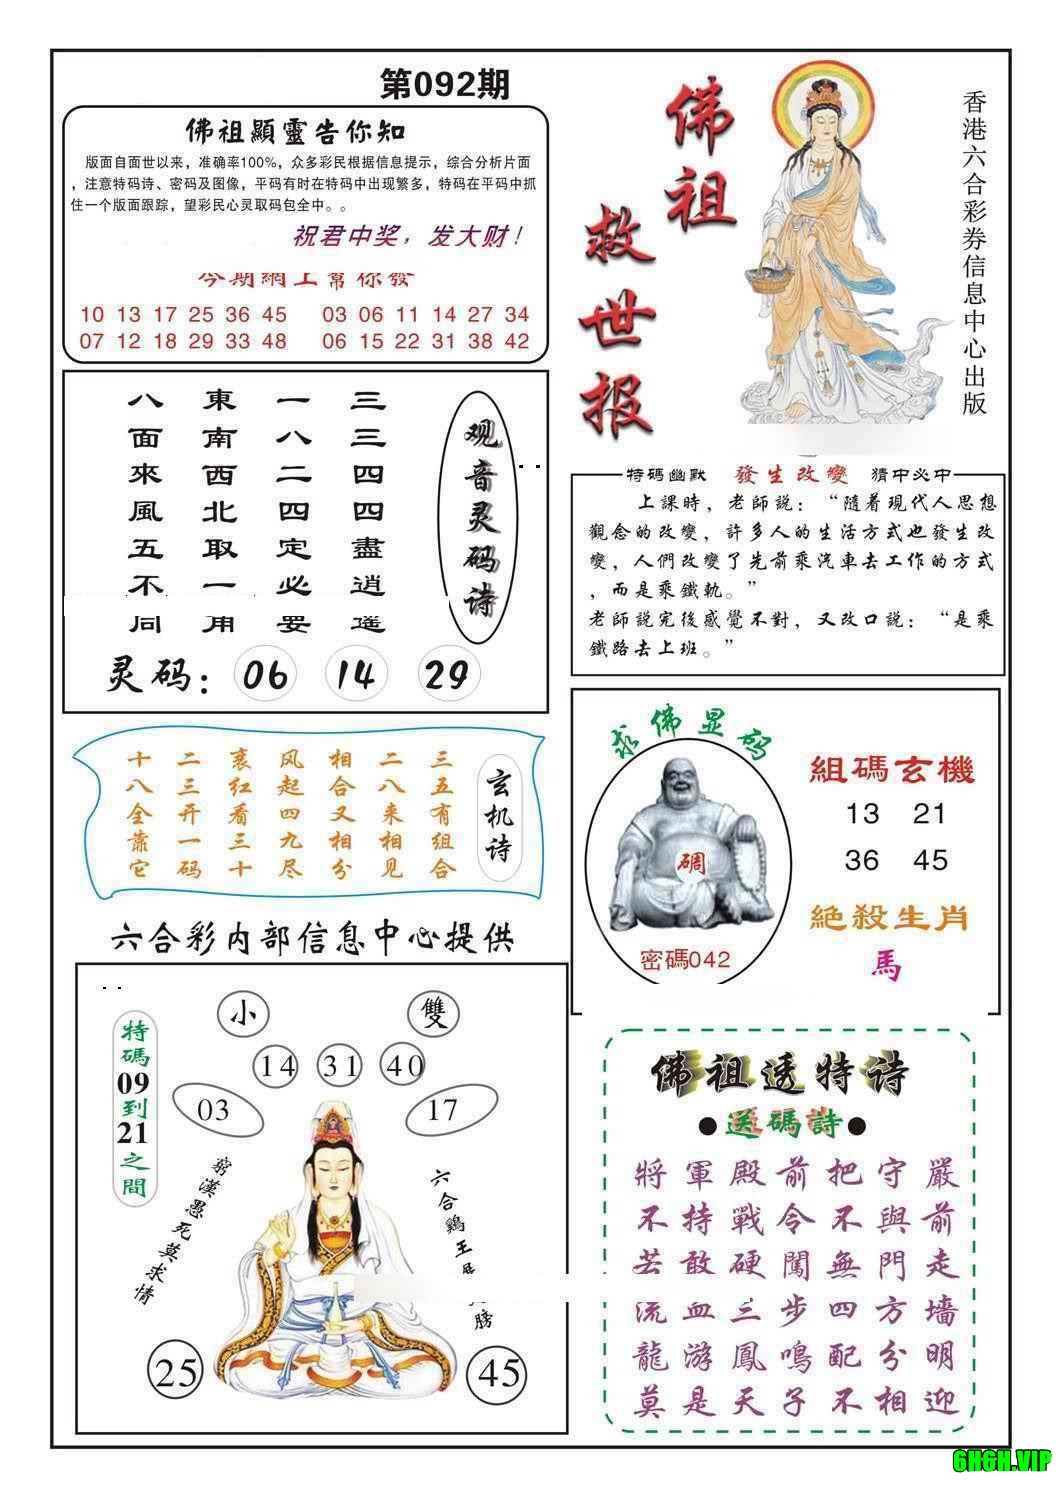 第092期
佛祖顯靈告你知
版面自面世以来，准确率100%，众多彩民根据信息提示，综合分析片面
，注意特码诗、密码及图像，平码有时在特码中出现繁多，特码在平码中抓
住一个版面跟踪，望彩民心灵取码包全中。。
祝君中奖，发大财！
今期網上幫你發
10 13 17 25 36 45 03 06 11 14 27 34
07 12 18 29 33 48 06 15 22 31 38 42
佛祖
救世报
香港六合彩券信息中心出版
观音灵码诗
三三四四盡逍遥
一八二四定必要
東南西北取一用
八面來風五不同
灵码：06 14 29
特碼幽默 發生改變 猜中必中
上課時，老師説：“隨着現代人思想
觀念的改變，許多人的生活方式也發生改
變，人們改變了先前乘汽車去工作的方式
，而是乘鐵軌。”
老師説完後感覺不對，又改口説：“是乘
鐵路去上班。”
玄机诗
三五有组合
二八来相见
相合又相分
风起四九尽
裹红看三十
二三开一码
十八全靠它
求佛显码
碉
密碼042
組碼玄機
13 21
36 45
絶殺生肖
馬
六合彩内部信息中心提供
特碼09到21之間
小 雙
14 31 40
03 17
窮漢愚死莫求情
六合鷄王
膀
25 45
佛祖透特诗
●送碼詩●
嚴前走墻明迎
守與門方分相
把不無四配不
前令闖步鳴子
殿戰硬三鳳天
軍持敢血游是
將不苦流龍莫
6H6H.VIP